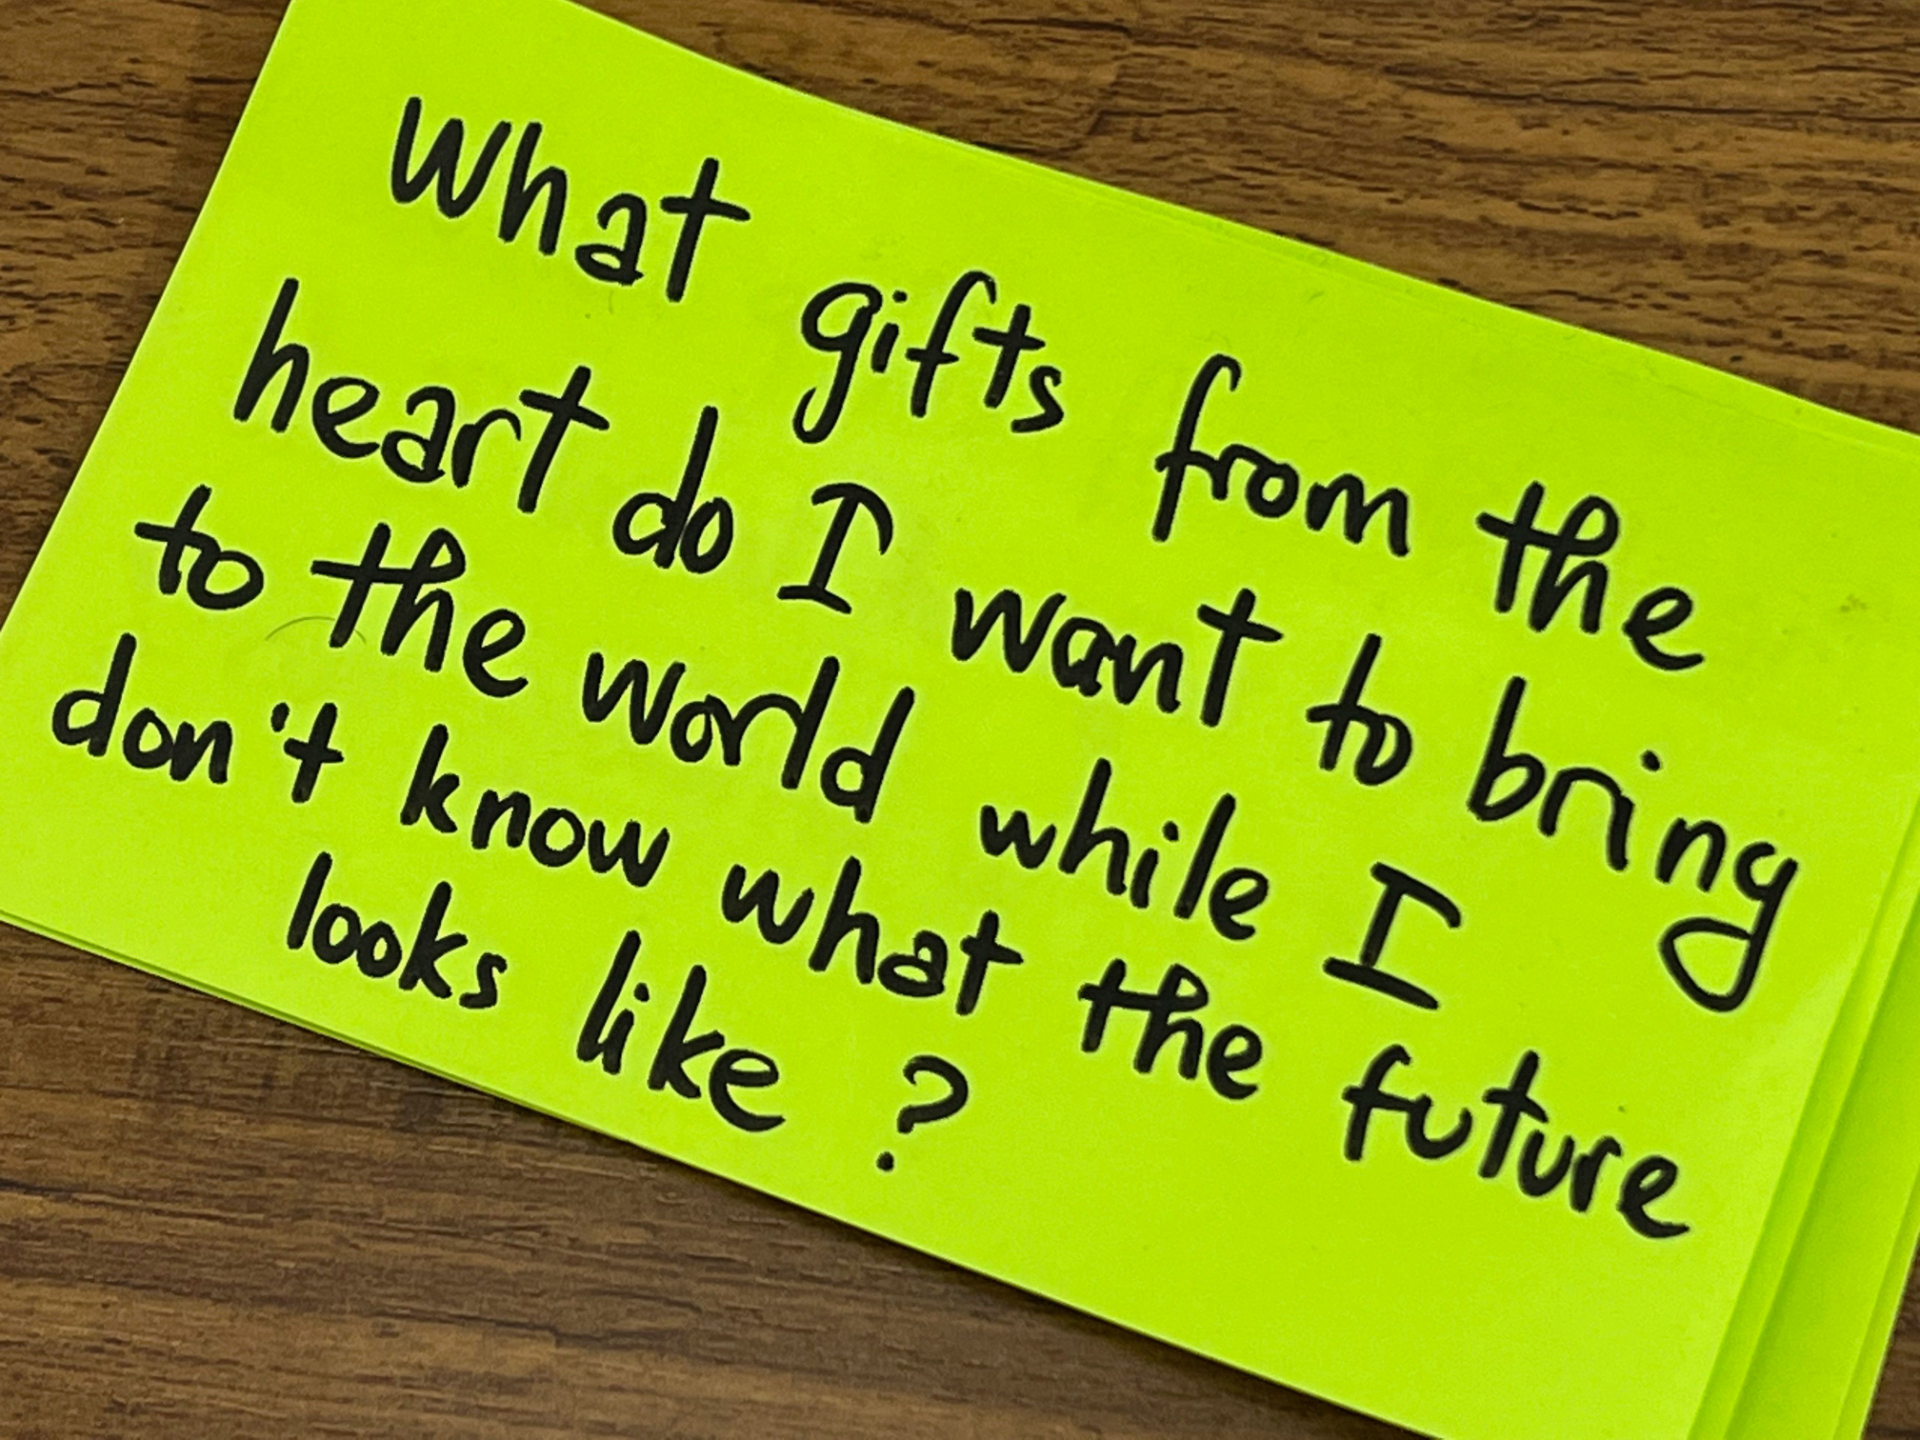 What gifts from the
heart do I want to bring
to the world while I
don't know what the future
looks like?